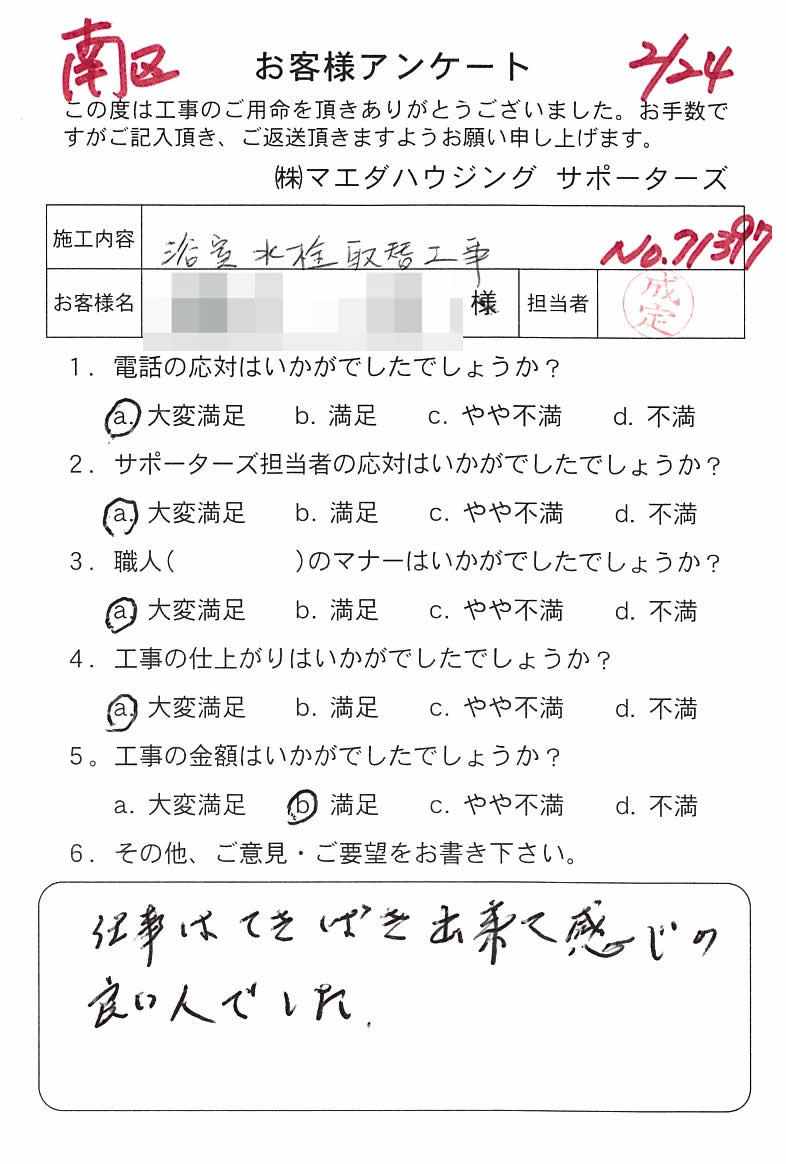 南区 お客様アンケート 2/24
この度は工事のご用命を頂きありがとうございました。お手数で
すがご記入頂き、ご返送頂きますようお願い申し上げます。
㈱マエダハウジング サポーターズ
施工内容 浴室水栓取替工事 No.71397
お客様名 様 担当者
1．電話の応対はいかがでしたでしょうか？
a. 大変満足 b. 満足 c. やや不満 d. 不満
2．サポーターズ担当者の応対はいかがでしたでしょうか？
a. 大変満足 b. 満足 c. やや不満 d. 不満
3．職人( )のマナーはいかがでしたでしょうか？
a. 大変満足 b. 満足 c. やや不満 d. 不満
4．工事の仕上がりはいかがでしたでしょうか？
a. 大変満足 b. 満足 c. やや不満 d. 不満
5。工事の金額はいかがでしたでしょうか？
a. 大変満足 b. 満足 c. やや不満 d. 不満
6．その他、ご意見・ご要望をお書き下さい。
仕事はてきぱき出来て感じの
良い人でした.